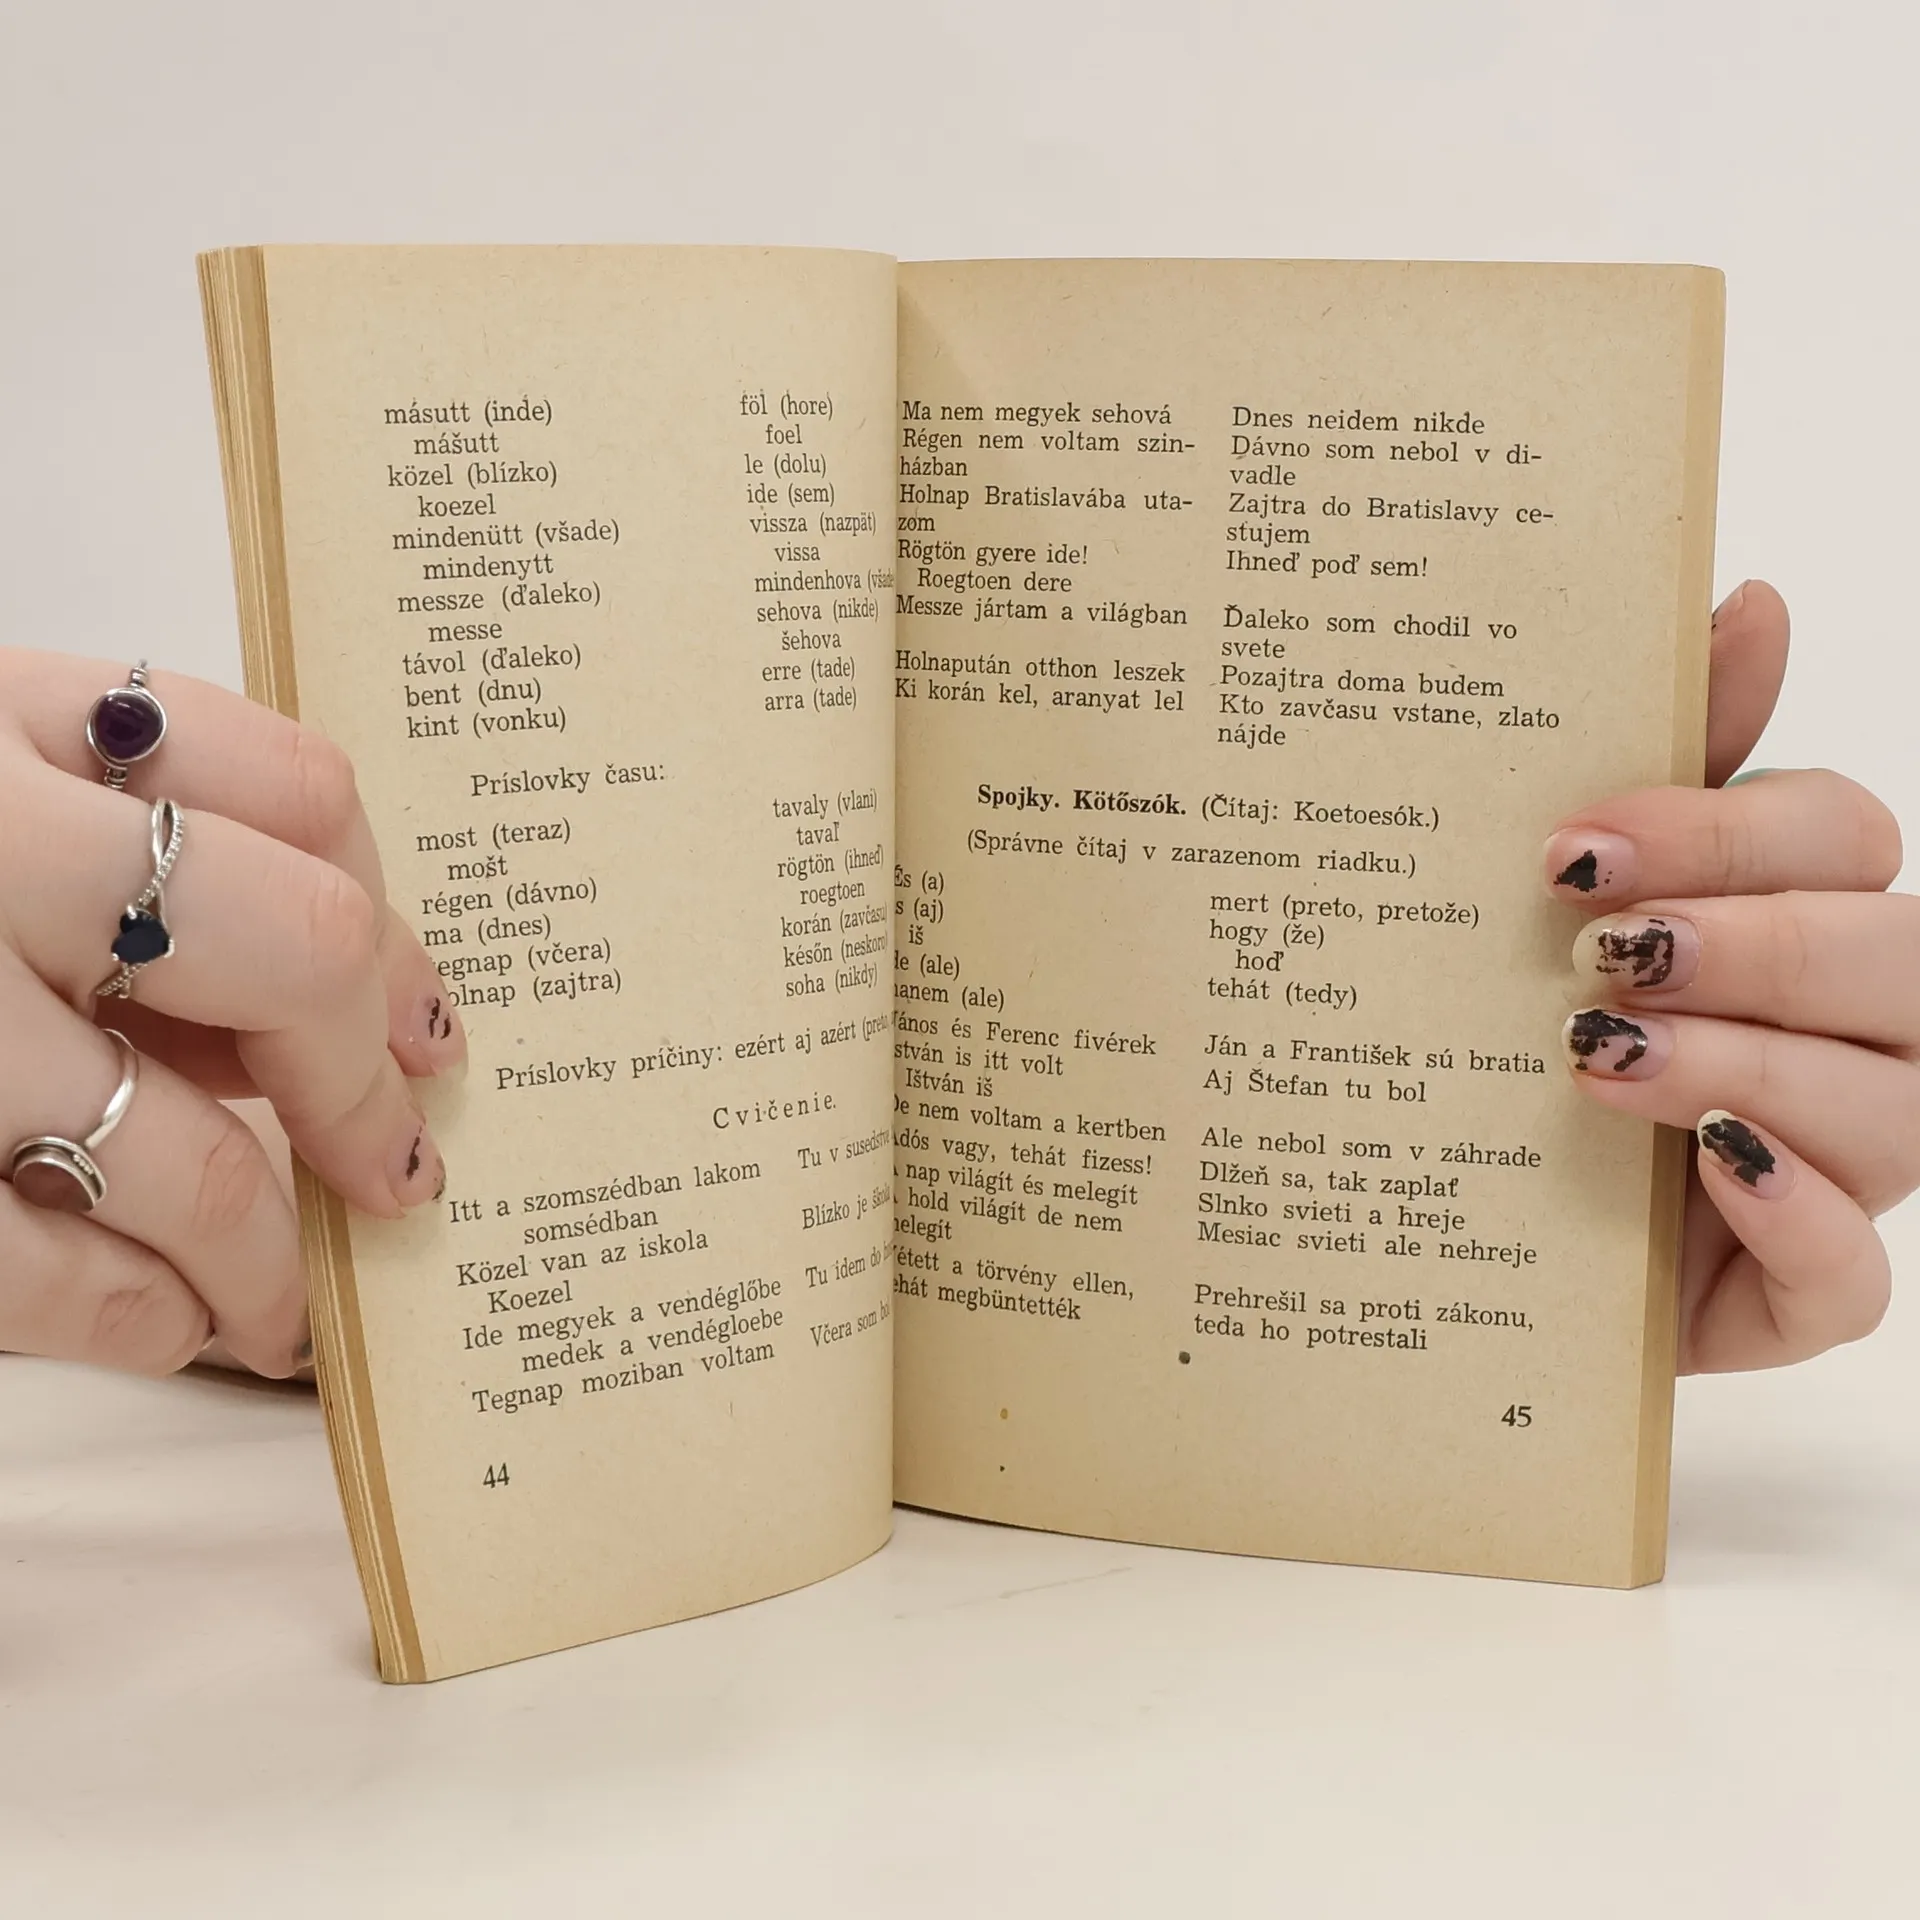 másutt (inde)
mášutt
közel (blízko)
koezel
mindenütt (všade)
mindenytt
messze (ďaleko)
messe
távol (ďaleko)
bent (dnu)
kint (vonku)
föl (hore)
foel
le (dolu)
ide (sem)
vissza (nazpät)
vissa
mindenhova
sehova (nikde)
šehova
erre (tade)
arra (tade)
Príslovky času:
most (teraz)
mošt
régen (dávno)
ma (dnes)
(včera)
(zajtra)
tavaly (vlani)
tavaľ
rögtön (ihneď)
roegtoen
korán (zavčasu)
későn (neskoro)
soha (nikdy)
Príslovky príčiny: ezért aj azért
Cvičenie.
Itt a szomszédban lakom
somsédban
Közel van az iskola
Koezel
Ide megyek a vendéglőbe
medek a vendégloebe
Tegnap moziban voltam
Tu v
Blízko je
Tu idem do
Včera som
44
Ma nem megyek sehová
Régen nem voltam szin-
házban
Holnap Bratislavába uta-
zom
Rögtön gyere ide!
Roegtoen dere
Messze jártam a világban
Holnapután otthon leszek
Ki korán kel, aranyat lel
Dnes neidem nikde
Dávno som nebol v di-
vadle
Zajtra do Bratislavy ce-
stujem
Ihneď poď sem!
Ďaleko som chodil vo
svete
Pozajtra doma budem
Kto zavčasu vstane, zlato
nájde
Spojky. Kötőszók. (Čítaj: Koetoesók.)
(Správne čítaj v zarazenom riadku.)
És (a)
(aj)
iš
(ale)
(ale)
mert (preto, pretože)
hogy (že)
hoď
tehát (tedy)
és Ferenc fivérek
is itt volt
Ištván iš
nem voltam a kertben
vagy, tehát fizess!
nap világít és melegít
hold világít de nem
a törvény ellen,
megbüntették
Ján a František sú bratia
Aj Štefan tu bol
Ale nebol som v záhrade
Dlžeň sa, tak zaplať
Slnko svieti a hreje
Mesiac svieti ale nehreje
Prehrešil sa proti zákonu,
teda ho potrestali
45